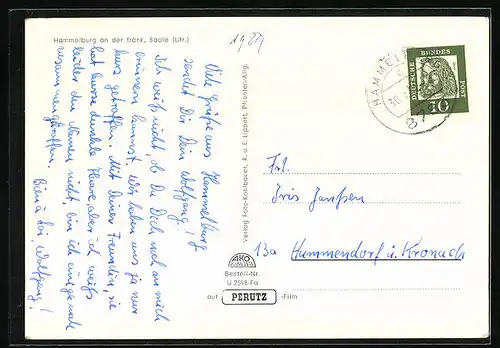 Hammelburg an der fränk. Saale (Ufr.)
Viele Grüße aus Hammelburg
sendet Dir Dein Wolfgang!
Ich weiß nicht, ob du Dich noch an mich
erinnern kannst. Wir haben uns ja nur
kurz getroffen. Mit Deiner Freundin, sie
hat kurze dunkle Haare, aber ich weiß
leider den Namen nicht, bin ich
zusammengetroffen.
Wolfgang!
Verlag Foto-Kohlbauer, R. u. E. Lippert, Pfronten/Allg.
AKO
Bestell-Nr.
U 2598-Fa
auf PERUTZ -Film
DEUTSCHE
BUNDES
POST
10
HAMMEL
Frl.
Iris Janßen
13a Hummendorf ü. Kronach